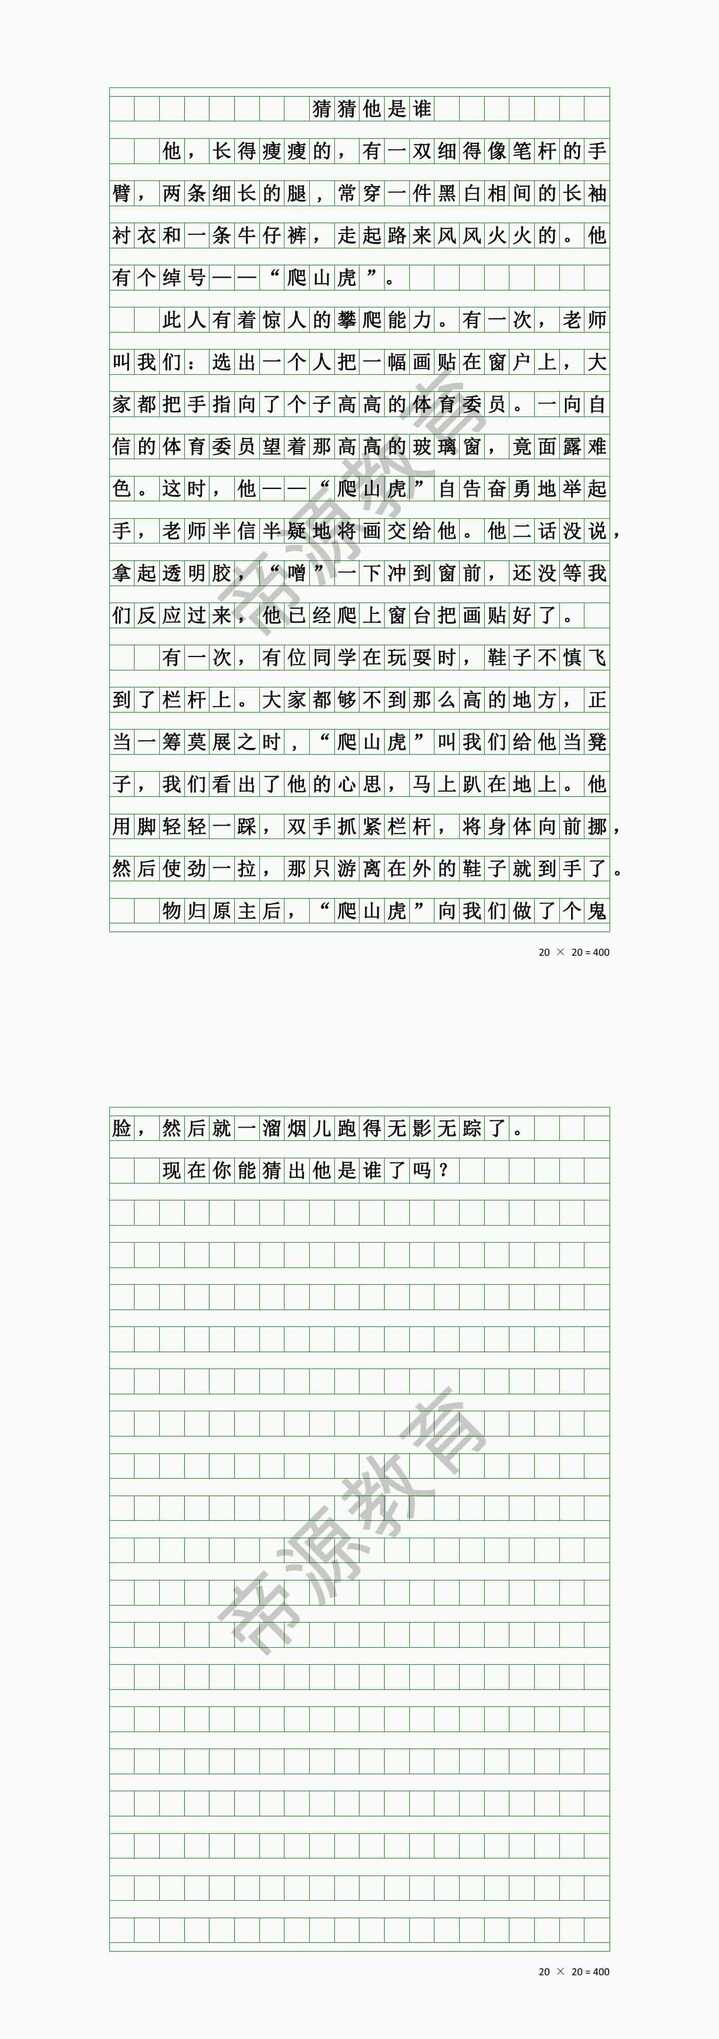 猜猜他是谁
他，长得瘦瘦的，有一双细得像笔杆的手
臂，两条细长的腿，常穿一件黑白相间的长袖
衬衣和一条牛仔裤，走起路来风风火火的。他
有个绰号——“爬山虎”。
此人有着惊人的攀爬能力。有一次，老师
叫我们：选出一个人把一幅画贴在窗户上，大
家都把手指向了个子高高的体育委员。一向自
信的体育委员望着那高高的玻璃窗，竟面露难
色。这时，他——“爬山虎”自告奋勇地举起
手，老师半信半疑地将画交给他。他二话没说，
拿起透明胶，“噌”一下冲到窗前，还没等我
们反应过来，他已经爬上窗台把画贴好了。
有一次，有位同学在玩耍时，鞋子不慎飞
到了栏杆上。大家都够不到那么高的地方，正
当一筹莫展之时，“爬山虎”叫我们给他当凳
子，我们看出了他的心思，马上趴在地上。他
用脚轻轻一踩，双手抓紧栏杆，将身体向前挪，
然后使劲一拉，那只游离在外的鞋子就到手了。
物归原主后，“爬山虎”向我们做了个鬼
20 × 20 = 400
脸，然后就一溜烟儿跑得无影无踪了。
现在你能猜出他是谁了吗？
20 × 20 = 400
帝源教育
帝源教育